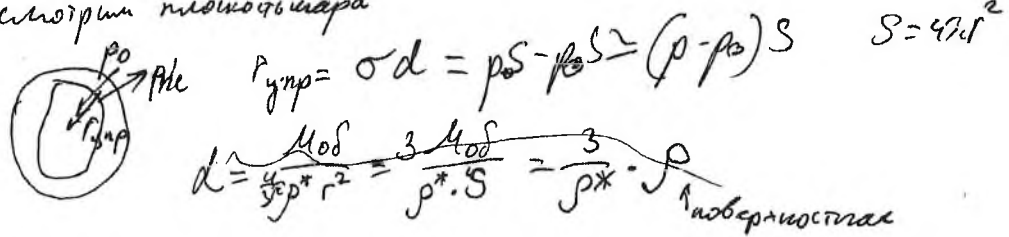 смотрим плоскость шара
p₀
p_He
F_упр
F_упр = σd = p₀S - p_вS = (p - p_в)S S = 4πr²
d = M_об / (4/3 π ρ* r²) = 3 M_об / (ρ* · S) = 3/ρ* · ρ
↑ поверхностная